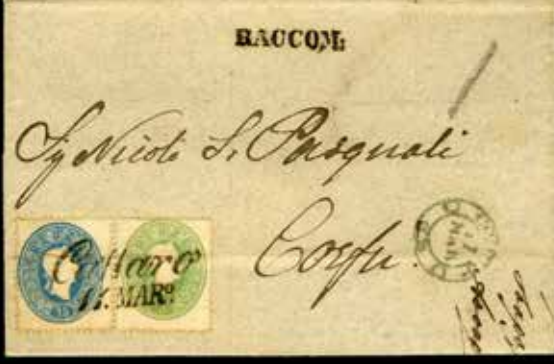 RACCOM:
Sig Nicolo S. Pasquali
Corfu.
Cattaro
11. MARº